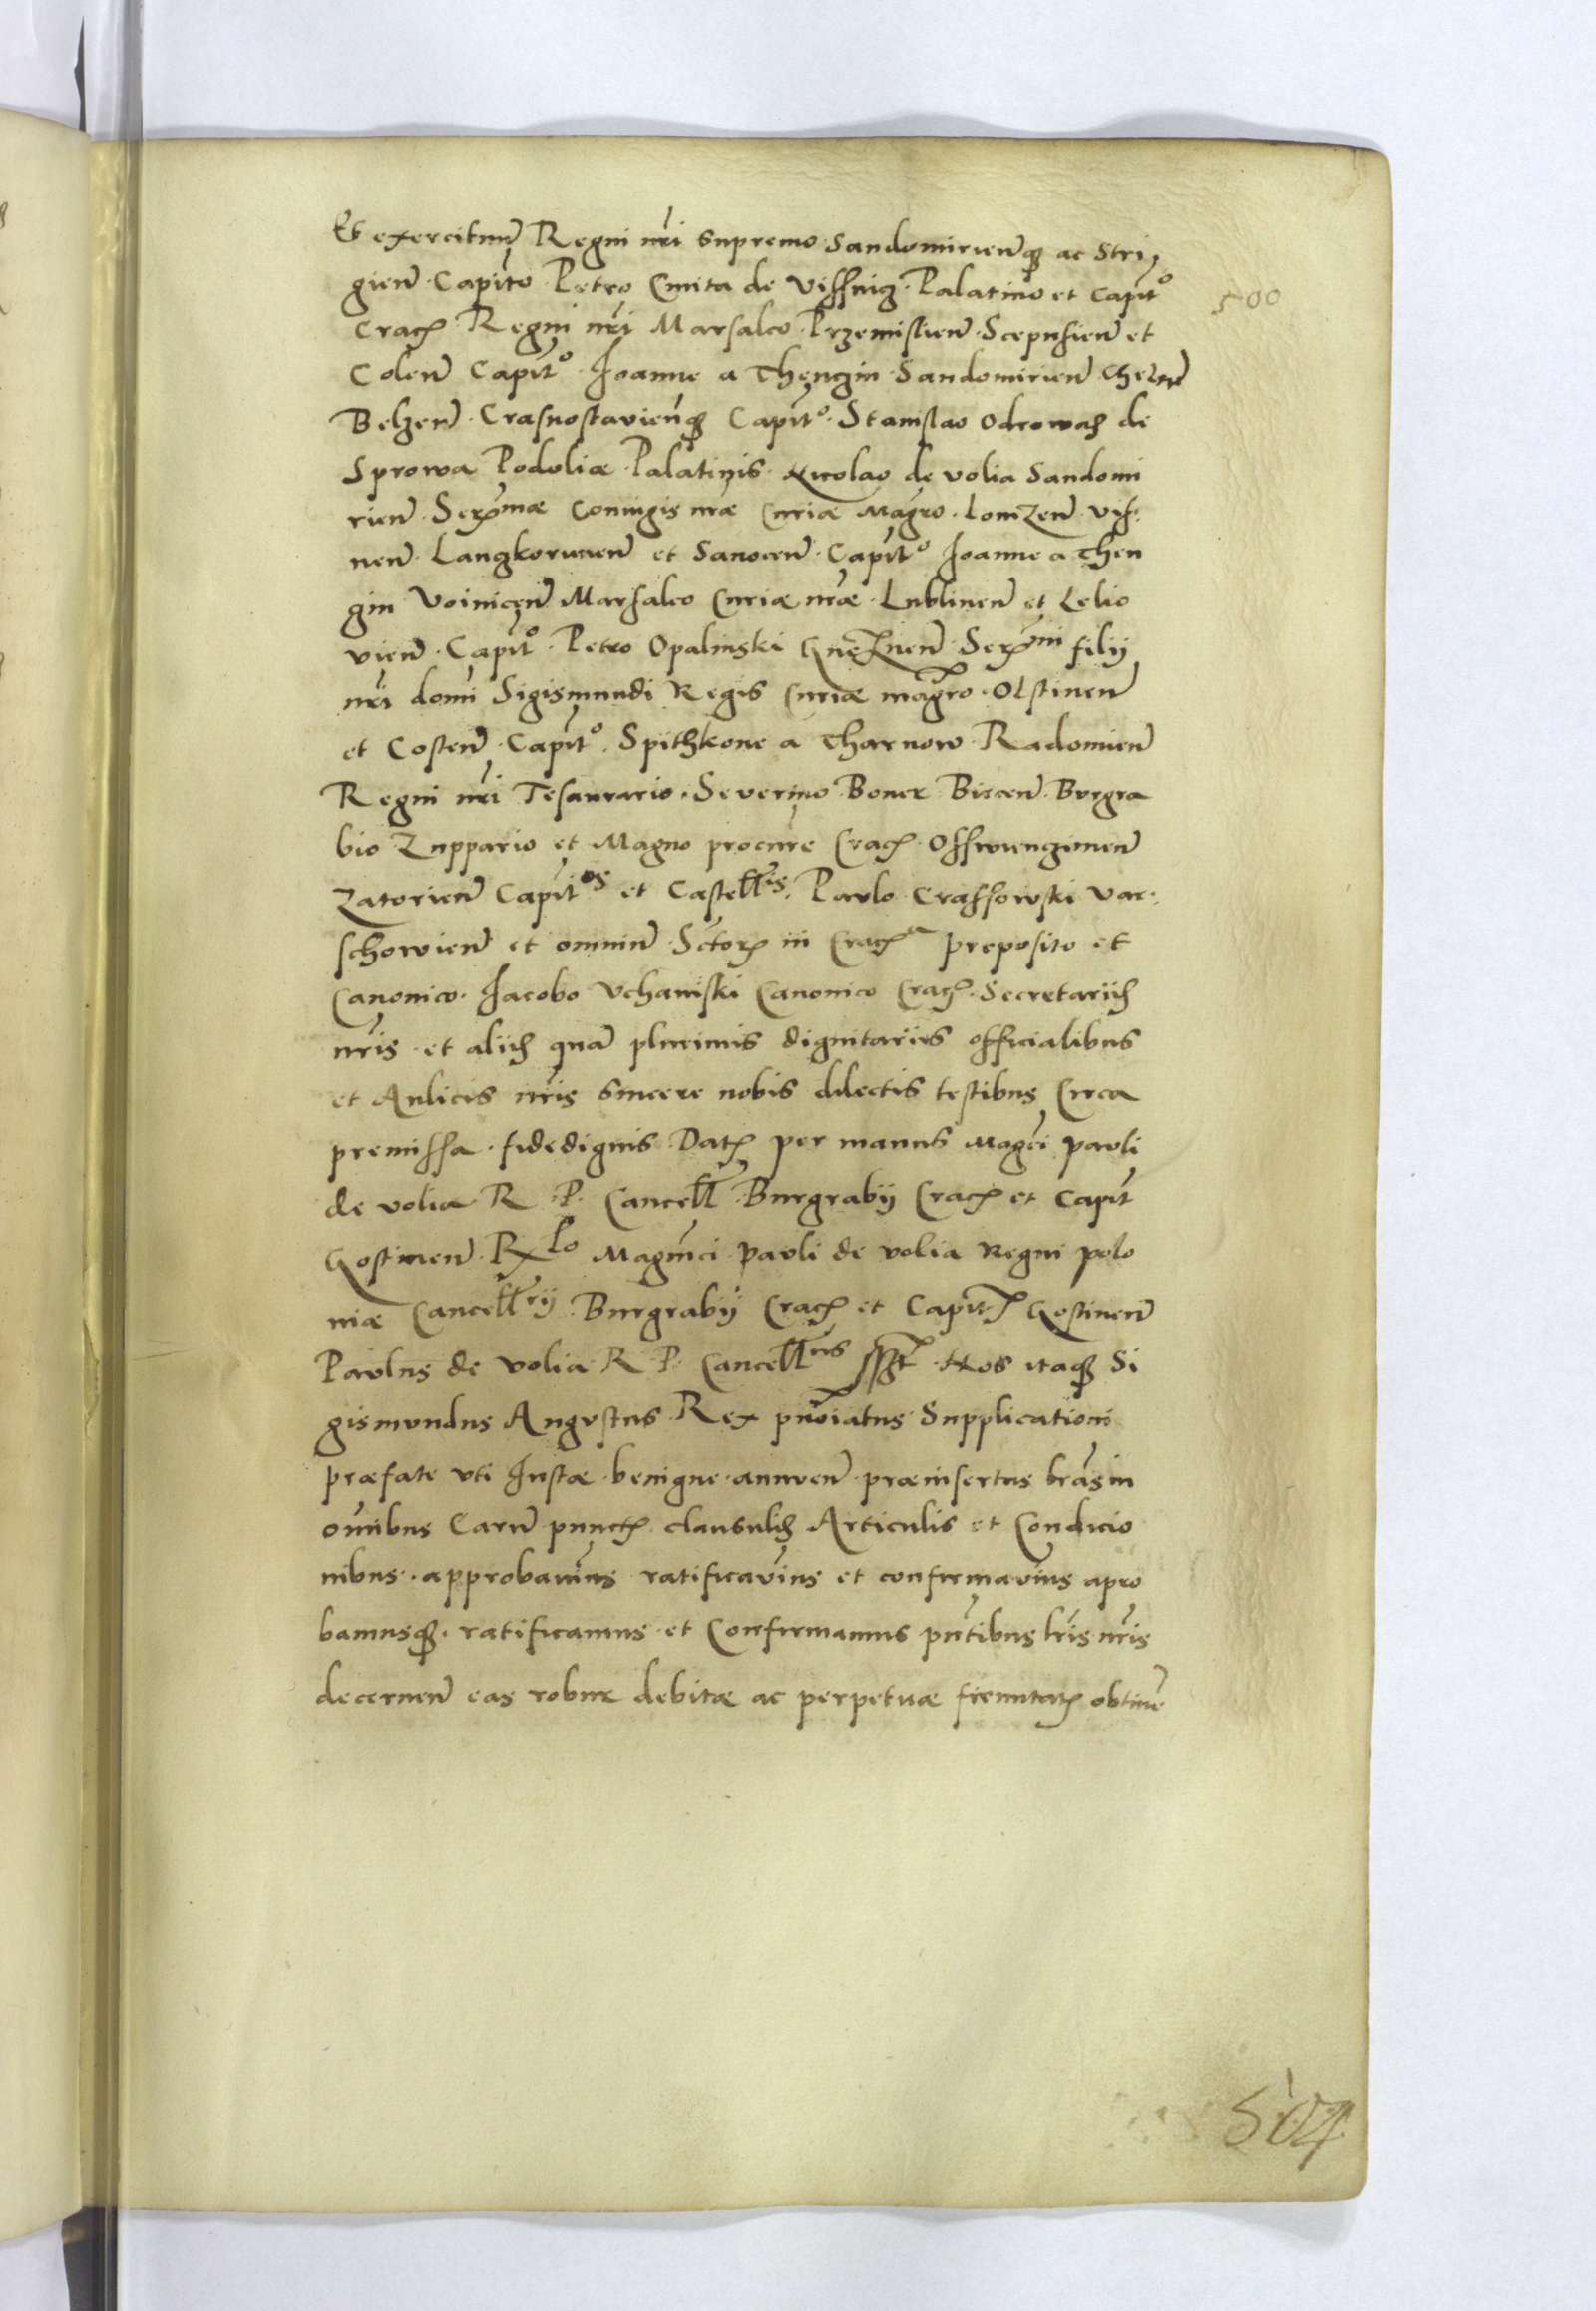 Et exercituũ Regni nr̃i supremo Sandomirienq̃ ac Stri
gien̄ Capit̃o Petro Cmita de Vissnicz Palatino et Capit̃o
500
Cracꝭ Regni nr̃i Marsalco Przemislien̄ Scepusien̄ et
Colen̄ Capit̃o Joanne a Thenczin Sandomirien̄ Chelmen̄
Belzen̄ Crasnostavienq̃ Capit̃o Stanislao Odrowasz de
Sprowa Podoliæ Palatinis Nicolao de volia Sandomi
rien̄ Serꝰmæ Coniugis nræ Curiæ Magr̃o Lomzen̄ Vis
nen̄ Lanczkorunen̄ et Sanocen̄ Capit̃o Joanne a Then
czin Voinicen̄ Marsalco Curiæ nr̃æ Lublinen̄ et Lelio
vien̄ Capit̃o Petro Opalinski Gneznen̄ Serꝰmi filij
nr̃i domi Sigismundi Regis Curiæ magr̃o Olstinen̄
et Costen̄ Capit̃o Spithkone a Tharnow Radomien̄
Regni nr̃i Tesaurario Severino Boner Biecen̄ Burgra
bio Zuppario et Magno procur̃e Cracꝭ Osswienczimen̄
Zatorien̄ Capit̃os et Castell̃is Paulo Crassowski Var
schowien̄ et omniũ Sctorꝭ in Cracꝭa preposito et
Canonico Jacobo Vchanski Canonico Cracꝭ Secretariis
nr̃is et aliis quã plurimis dignitariis officialibus
et Aulicis nr̃is sincere nobis dilectis testibus Circa
premissa fidedignis Datꝭ per manus Magci pauli
de volia R P Cancell̃ Burgrabij Cracꝭ et Capit̃
Gostinen̄ Rxlo Magnci pauli de volia Regni polo
niæ Cancell̃rij Burgrabij Cracꝭ et Capitꝭ Gostinen̄
Paulus de volia R P Cancell̃us sszt Nos itaq̃ Si
gismundus Augustus Rex pnõiatus Supplicationi
præfate uti Justæ benigne annuen̄ præinsertus lr̃as in
om̃ibus Earũ punctꝭ clausulis Articulis et Condicio
nibus approbavim̃us ratificavim̃us et confirmavim̃us apro
bamusq̃ ratificamus et Confirmamus pn̄tibus lr̃is nr̃is
decernen̄ eas robur debitæ ac perpetuæ firmitatꝭ obtine
504